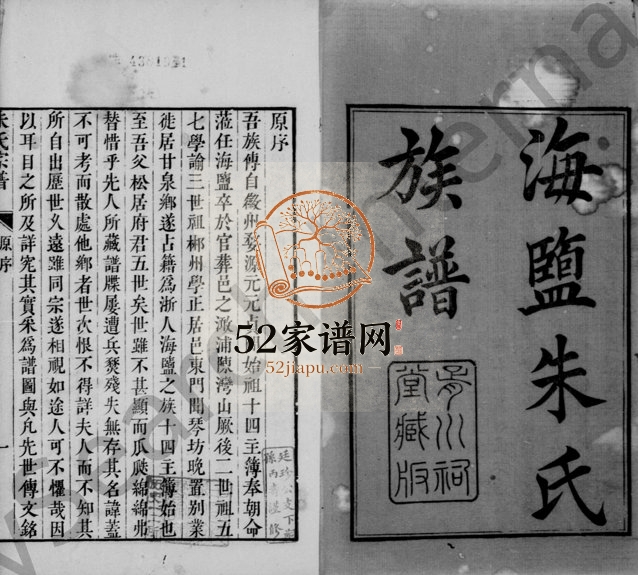 4381541
海鹽朱氏
族譜
祠
堂藏版
原序
吾族傳自徽州婺源元元始祖十四主簿奉朝命
蒞任海鹽卒於官葬邑之澉浦陳灣山厥後二世祖五
七學諭三世祖郴州學正居邑東門聞琴坊晚置別業
徙居甘泉鄉遂占籍為浙人海鹽之族十四主簿始也
至吾父松居府君五世矣世雖不甚顯而瓜瓞綿綿弗
替惜乎先人所藏譜牒屢遭兵燹殘失無存其名諱蓋
不可考而散處他鄉者世次恨不得詳夫人而不知其
所自出歷世久遠雖同宗遂相視如途人可不懼哉因
以耳目之所及詳究其實采為譜圖與凡先世傳文銘
朱氏宗譜
原序
一
52家谱网
52jiapu.com